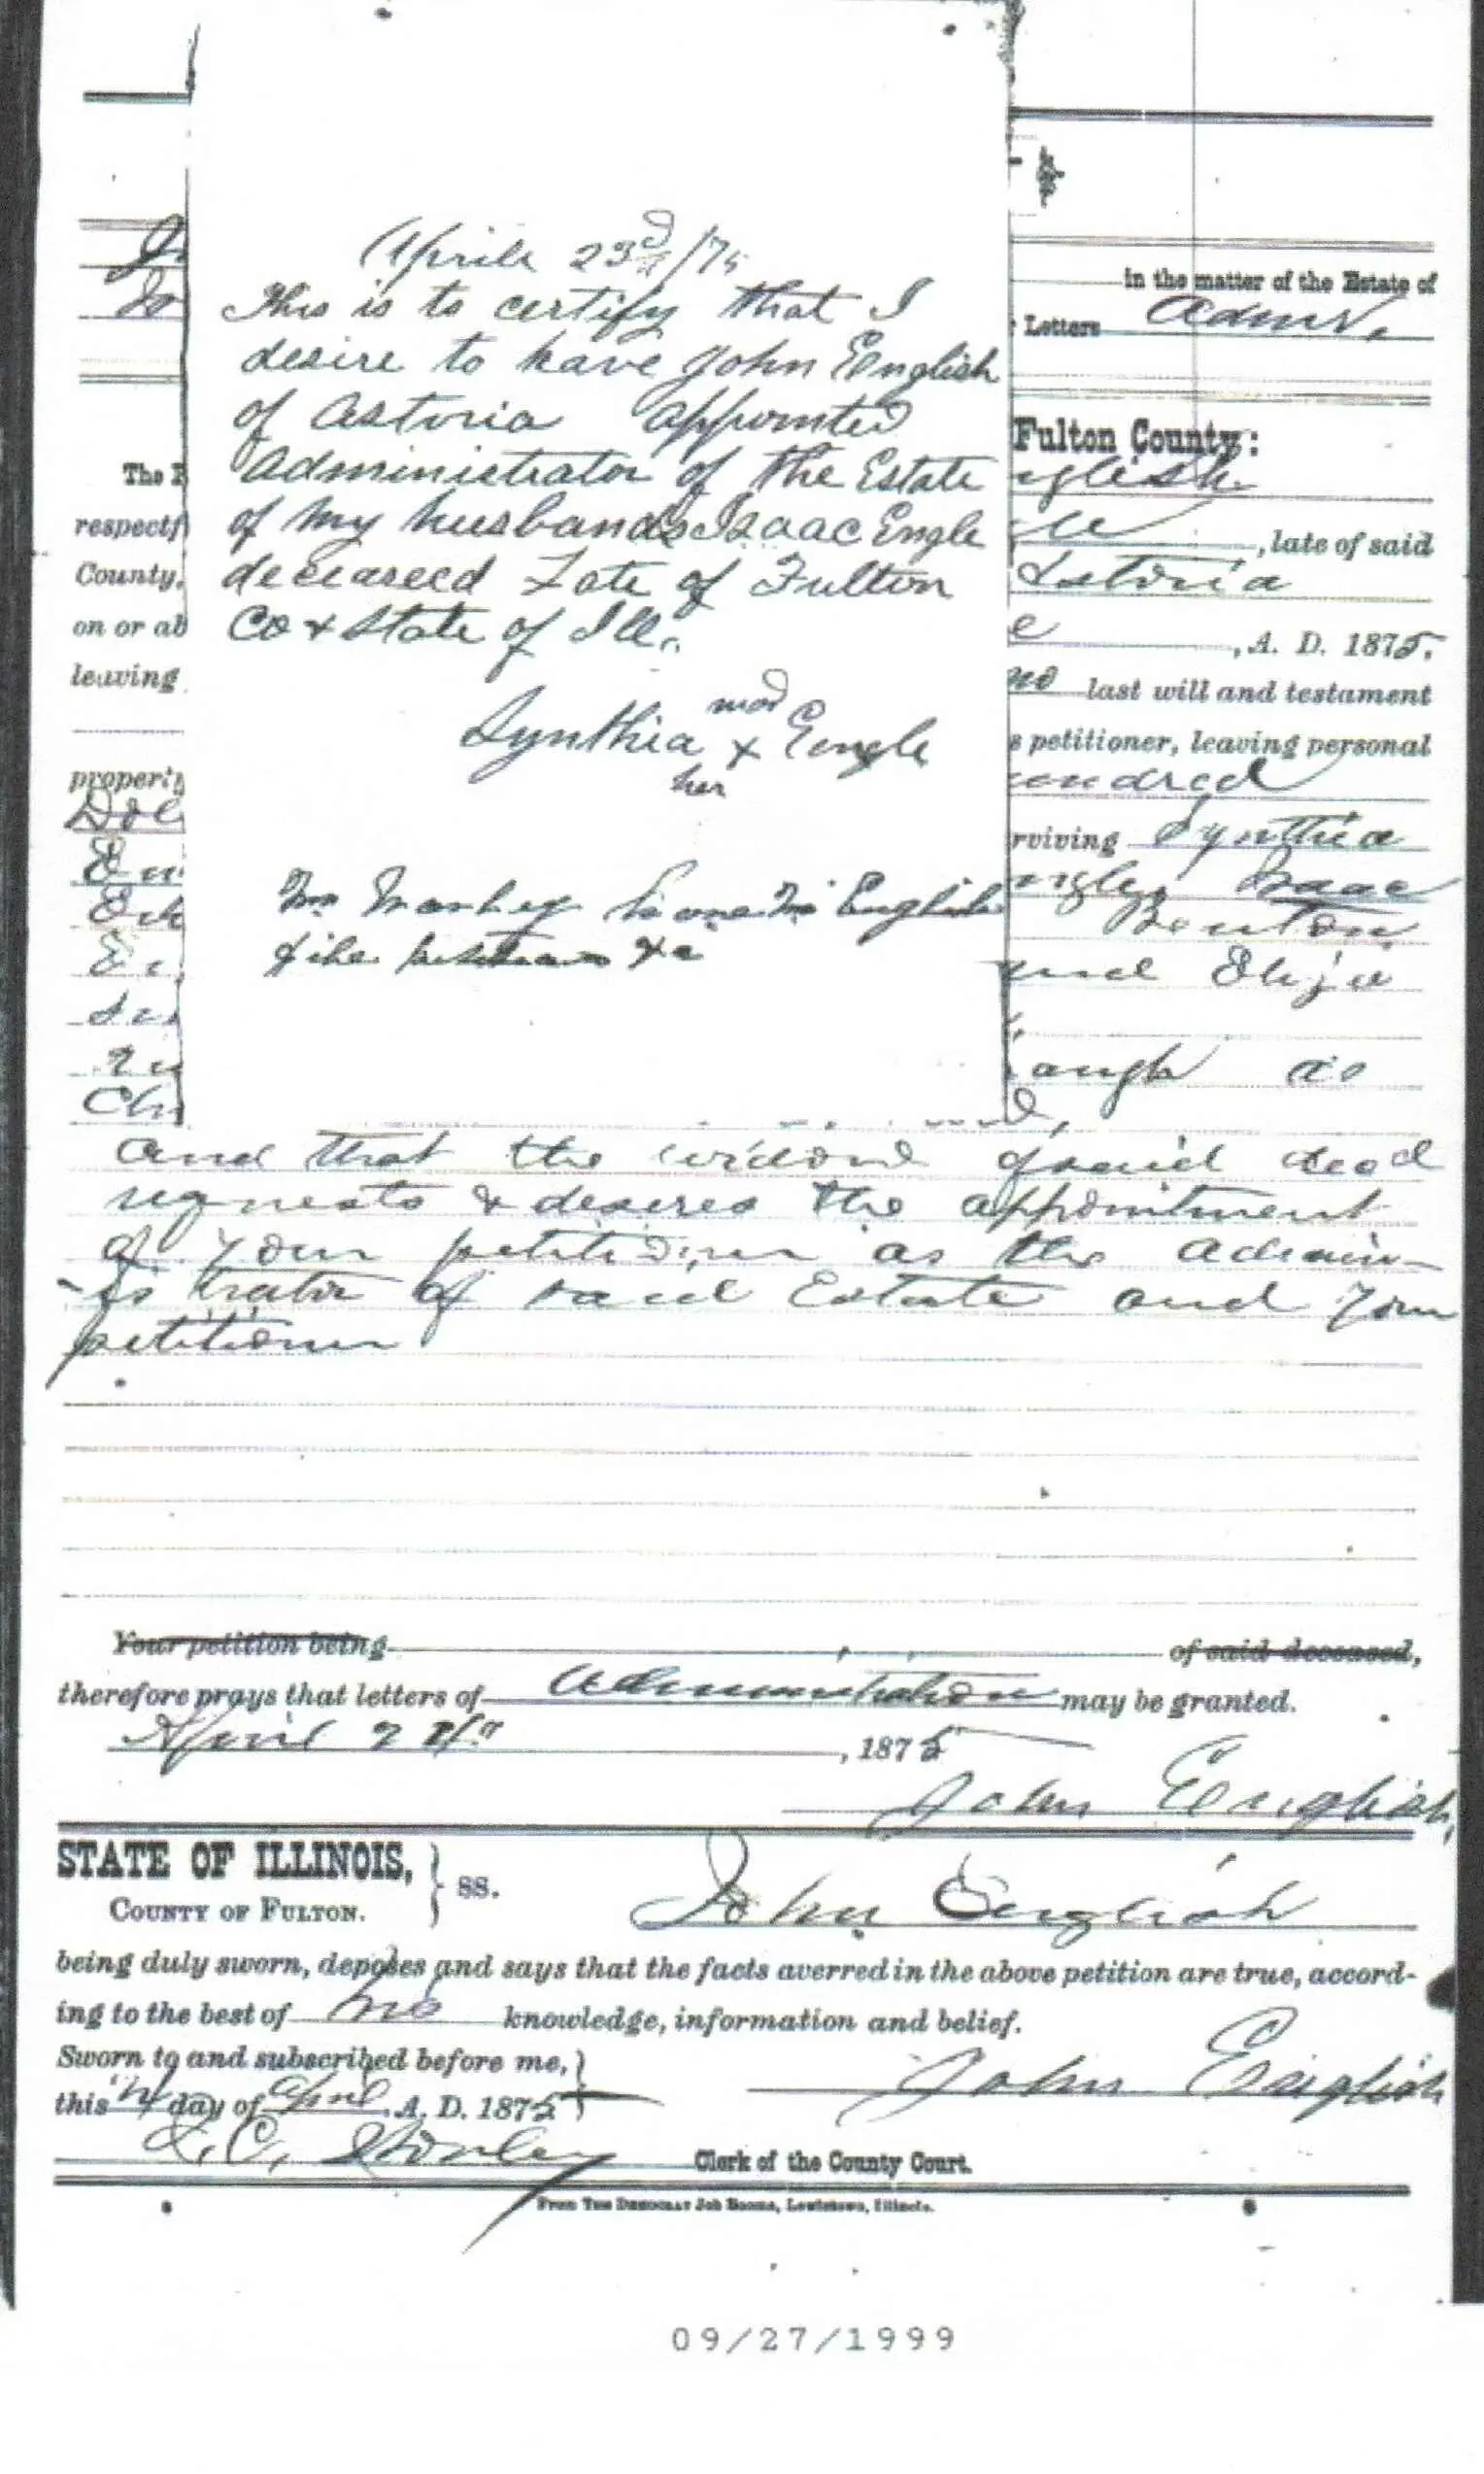 in the matter of the Estate of
Letters Admr.
Aprile 23d/75
This is to certify that I
desire to have John English
of Astoria appointed
Administrator of the Estate
of my husbands Isaac Engle
deceased Late of Fulton
Co & State of Ill.
Synthia x Eengle
her
English
file
Fulton County:
glish
The
respectf
, late of said
County,
storia
on or ab
, A. D. 1875.
leaving
no last will and testament
s petitioner, leaving personal
property
undred
Dol
rviving Synthia
ngle, Isaac
Benton
and Elija
augh as
and that the widow of said decd
requests & desires the appointment
of your petitioner as the admin-
-istrator of said Estate and your
petitioner
Your petition being of said deceased,
therefore prays that letters of Administration may be granted.
April , 1875
John English
STATE OF ILLINOIS,
COUNTY OF FULTON. } ss.
John English
being duly sworn, deposes and says that the facts averred in the above petition are true, accord-
ing to the best of his knowledge, information and belief.
Sworn to and subscribed before me,
this day of April A. D. 1875
John English
Clerk of the County Court.
From The Democrat Job Rooms, Lewistown, Illinois.
09/27/1999